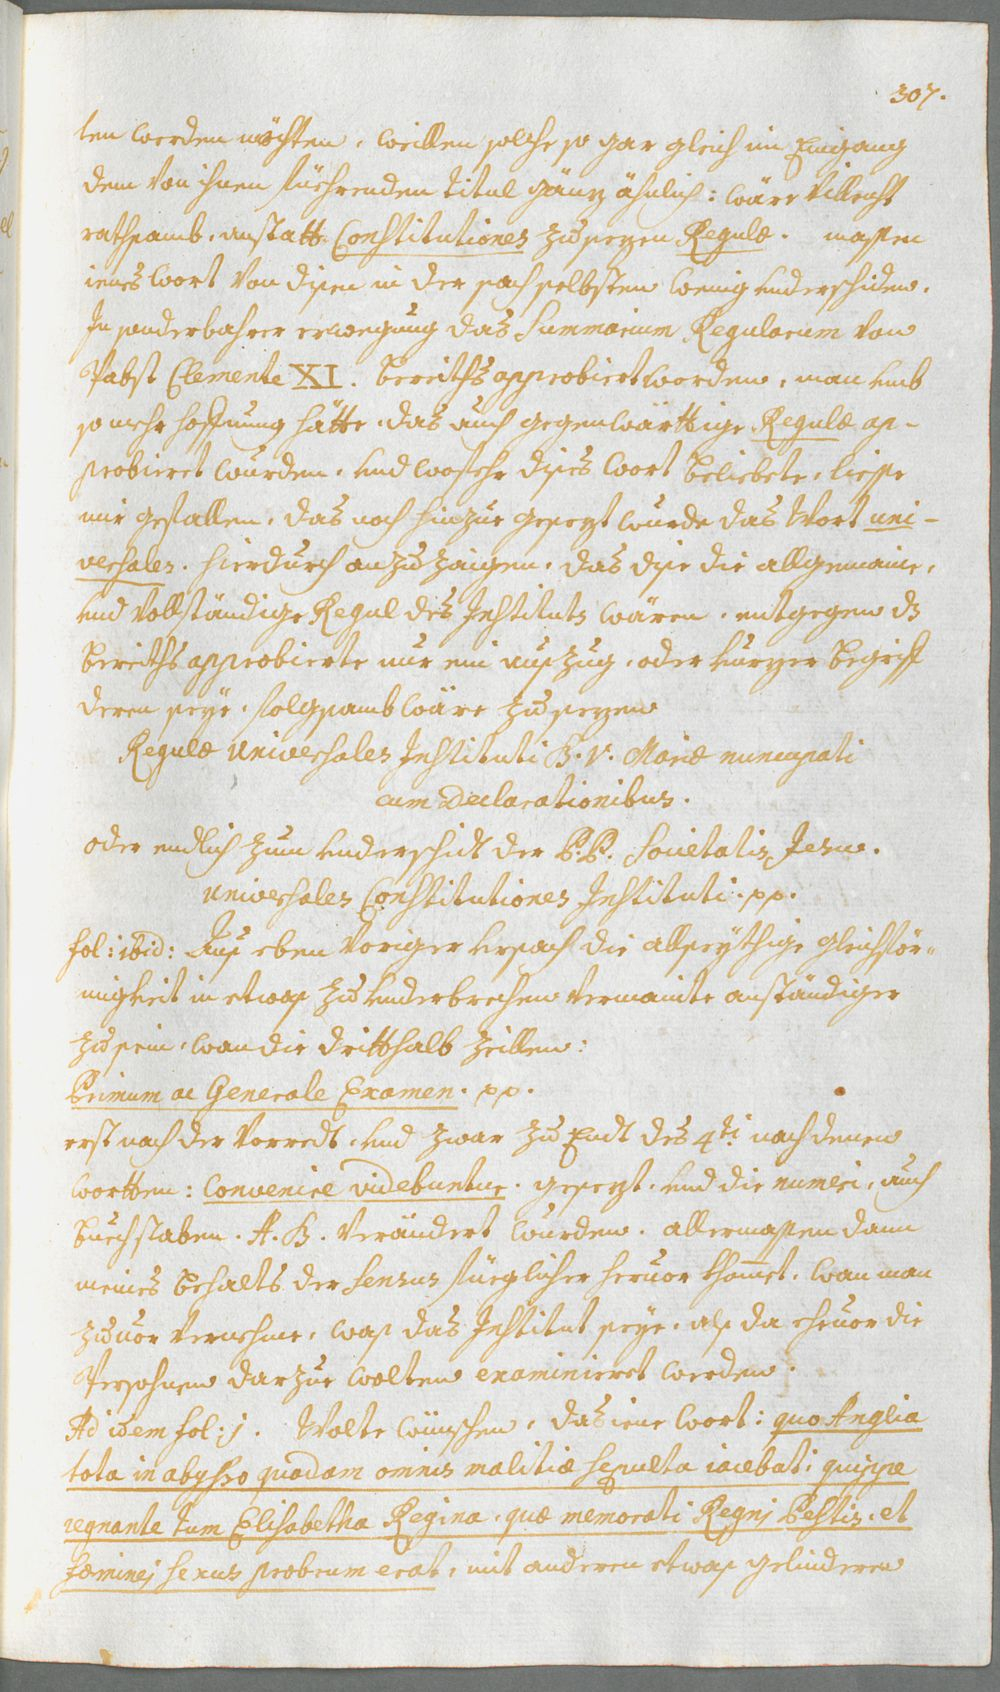 307.
ten werden möchten, weillen solche so gar gleich im Eingang
dem von ihnen füehrenden titul gänz ähnlich: wäre villeicht
rathsamb, anstatt Constitutiones zusezen Regulæ. massen
ienes wort von disen in der sach selbsten wenig underschiden.
In sonderbahrer erwegung das Summarium Regularum von
Pabst Clemente XI. bereiths approbiert worden, man umb
so mehr hoffnung hätte, das auch gegenwärttige Regulæ ap-
probieret wurden, und wofehr dises wort beliebete, liesse
mir gefallen, das noch hinzue gesezt wurde das Wort uni-
versales. hierdurch anzuzaigen, das dise die allgemaine,
und vollständige Regul des Instituts wären, entgegen ds
bereiths approbierte nur ein auszug, oder kurzer begriff
deren seye, folgsamb wäre zusezen
Regulæ universales Instituti B. V. Mariæ nuncupati
cum Declarationibus.
oder endlich zum underschidt der P.P. Societatis Jesu.
universales Constitutiones Instituti. pp.
fol: ibid: Aus eben voriger ursach die allseythige gleichför-
migkeit in etwas zu underbrechen vermainte anständiger
zusein, wan die dritthalb zeillen:
Primum ac Generale Examen. pp.
erst nach der vorredt, und zwar zu Endt des 4ti nach denen
wortten: Convenire videbuntur. gesezt, und die numeri, auch
buechstaben. A. B. verändert wurden. allermassen dann
meines behalts der sensus füeglicher hervor khomet, wan man
zuvor vernehme, was das Institut seye, als da ehevor die
Persohnen darzue wolten examinieret werden.
Ad idem fol: j. Wolte wünschen, das iene wort: quo Anglia
tota in abysso quadam omnis malitiæ sepulta iacebat, quippe
regnante tum Elisabetha Regina, quæ memorati Regnj Pestis, et
fæminej sexus probrum erat, mit anderen etwas gelinderen